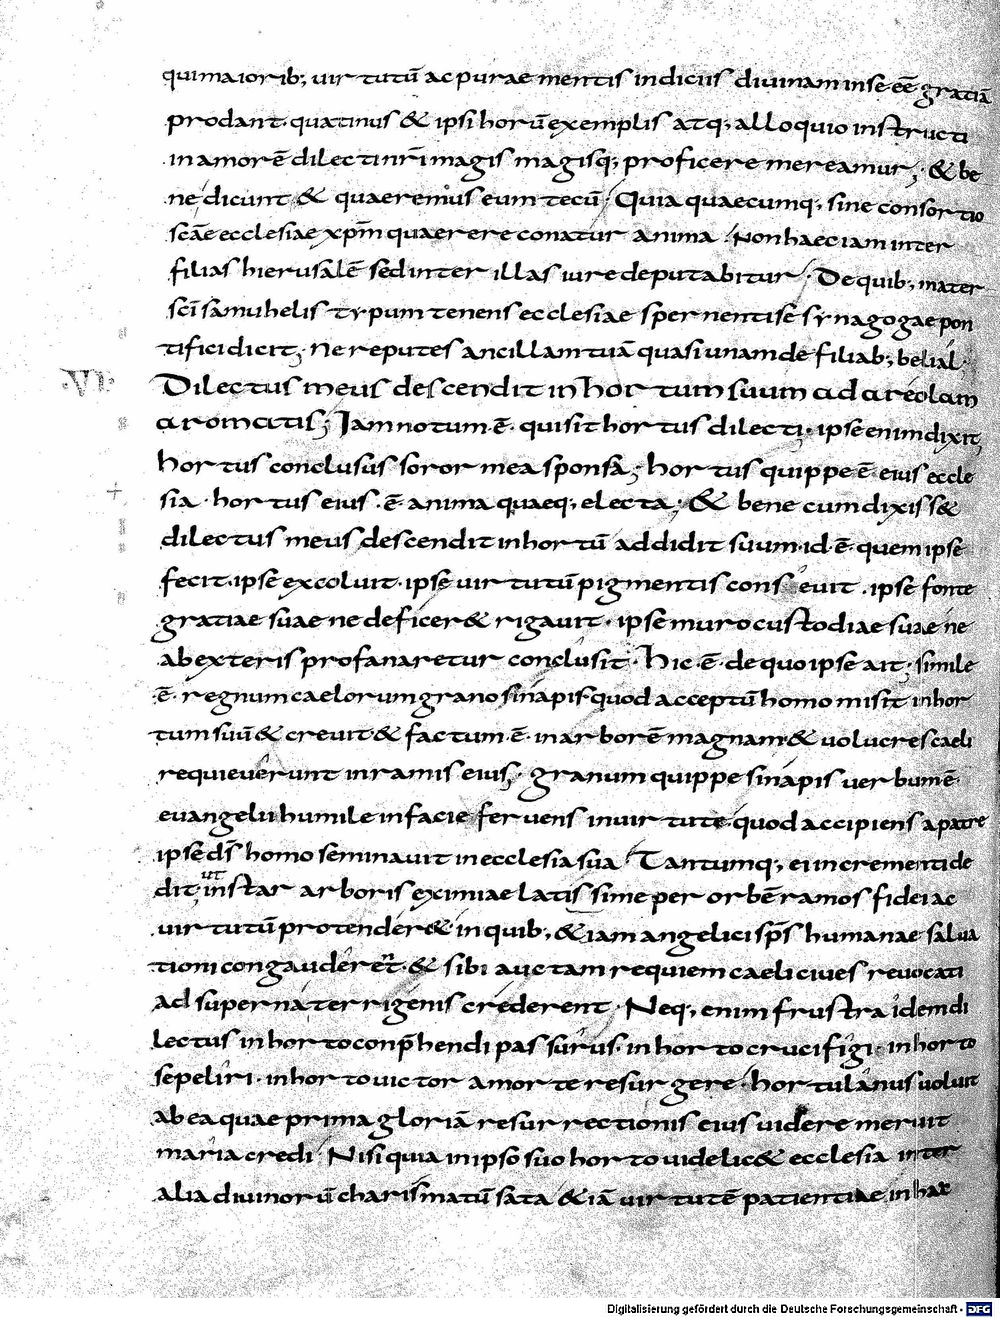 qui maiorib; uirtutū ac purae mentis indiciis diuinam in se eē gratiā
prodant. quatinus & ipsi horū exemplis atq; alloquio instructi
in amorē dilecti nr̄i magis magisq; proficere mereamur; & be
ne dicunt & quaeremus eum tecū; Quia quaecumq; sine consortio
scāe ecclesiae xpm̄ quaerere conatur anima. Non haec iam inter
filias hierusalē sed inter illas iure deputabitur. De quib; mater
scī samuhelis typum tenens ecclesiae spernenti se synagogae pon
tifici dicit; ne reputes ancillam tuā quasi unam de filiab; belial.
·VI· Dilectus meus descendit in hortum suum ad areolam
aromatis; Iam notum ē. qui sit hortus dilecti. ipse enim dixit;
hortus conclusus soror mea sponsa; hortus quippe ē eius eccle
sia. hortus eius. ē. anima quaeq; electa; & bene cum dixiss&
dilectus meus descendit in hortū addidit suum. id. ē. quem ipse
fecit. ipse excoluit. ipse uirtutū pigmentis conseuit. ipse fonte
gratiae suae ne deficer& rigauit. ipse muro custodiae suae ne
ab exteris profanaretur conclusit. Hic. ē. de quo ipse ait; simile
ē. regnum caelorum grano sinapis quod acceptū homo misit in hor
tum suū & creuit & factum. ē. in arborē magnam & uolucres caeli
requieuerunt in ramis eius; granum quippe sinapis uerbum ē.
euangelii humile in facie feruens in uirtute. quod accipiens a patre
ipse ds̄ homo seminauit in ecclesia sua. Tantumq; ei incrementi de
dit, ut instar arboris eximiae latissime per orbē ramos fidei ac
uirtutū protender& in quib; & iam angelici sp̄s humanae salua
tioni congauderent. & sibi auctam requiem caeli ciues reuocati
ad superna terrigenis crederent. Neq; enim frustra idem di
lectus in horto conp̄hendi passurus. in horto crucifigi. in horto
sepeliri. in horto uictor a morte resurgere. hortulanus uoluit
ab ea quae prima gloriā resurrectionis eius uidere meruit
maria credi. Nisi quia in ipso suo horto uidelic& ecclesia inter
alia diuinorū charismatū sata & iā uirtutē patientiae in hac
Digitalisierung gefördert durch die Deutsche Forschungsgemeinschaft - DFG